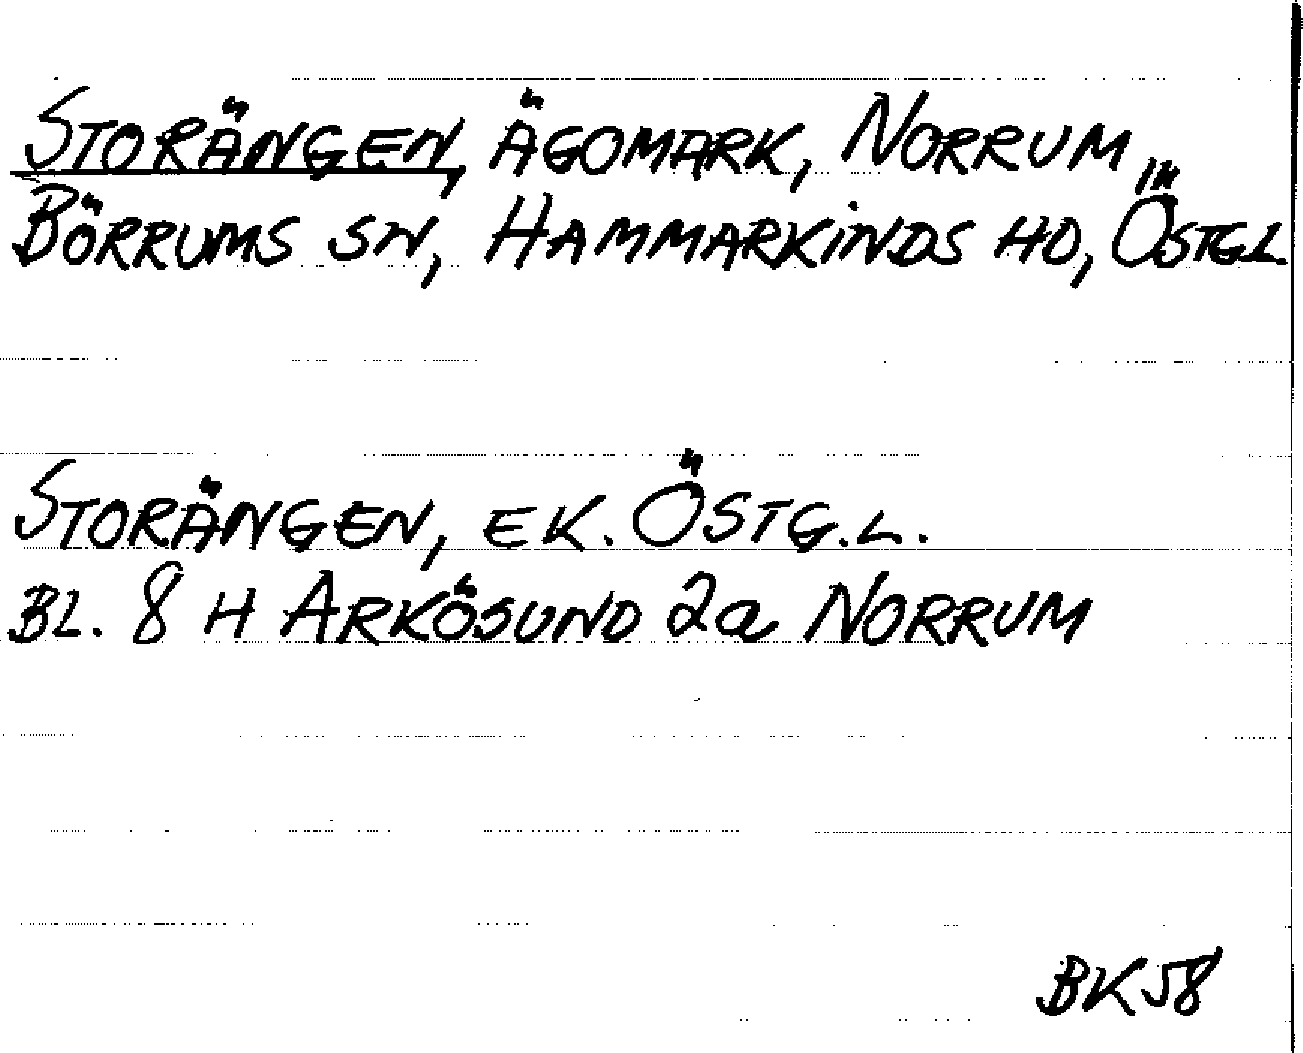 STORÄNGEN, ÄGOMARK, NORRUM,
BÖRRUMS SN, HAMMARKINDS HD, ÖSTGL.
STORÄNGEN, EK. ÖSTG.L.
BL. 8 H ARKÖSUND 2a NORRUM
BK58